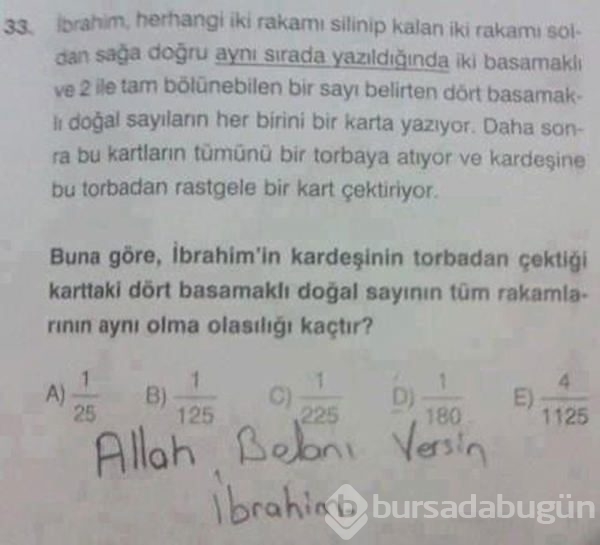 33. İbrahim, herhangi iki rakamı silinip kalan iki rakamı sol-
dan sağa doğru aynı sırada yazıldığında iki basamaklı
ve 2 ile tam bölünebilen bir sayı belirten dört basamak-
lı doğal sayıların her birini bir karta yazıyor. Daha son-
ra bu kartların tümünü bir torbaya atıyor ve kardeşine
bu torbadan rastgele bir kart çektiriyor.
Buna göre, İbrahim'in kardeşinin torbadan çektiği
karttaki dört basamaklı doğal sayının tüm rakamla-
rının aynı olma olasılığı kaçtır?
A) 1/25 B) 1/125 C) 1/225 D) 1/180 E) 4/1125
Allah Belanı Versin
İbrahim
bursadabugün